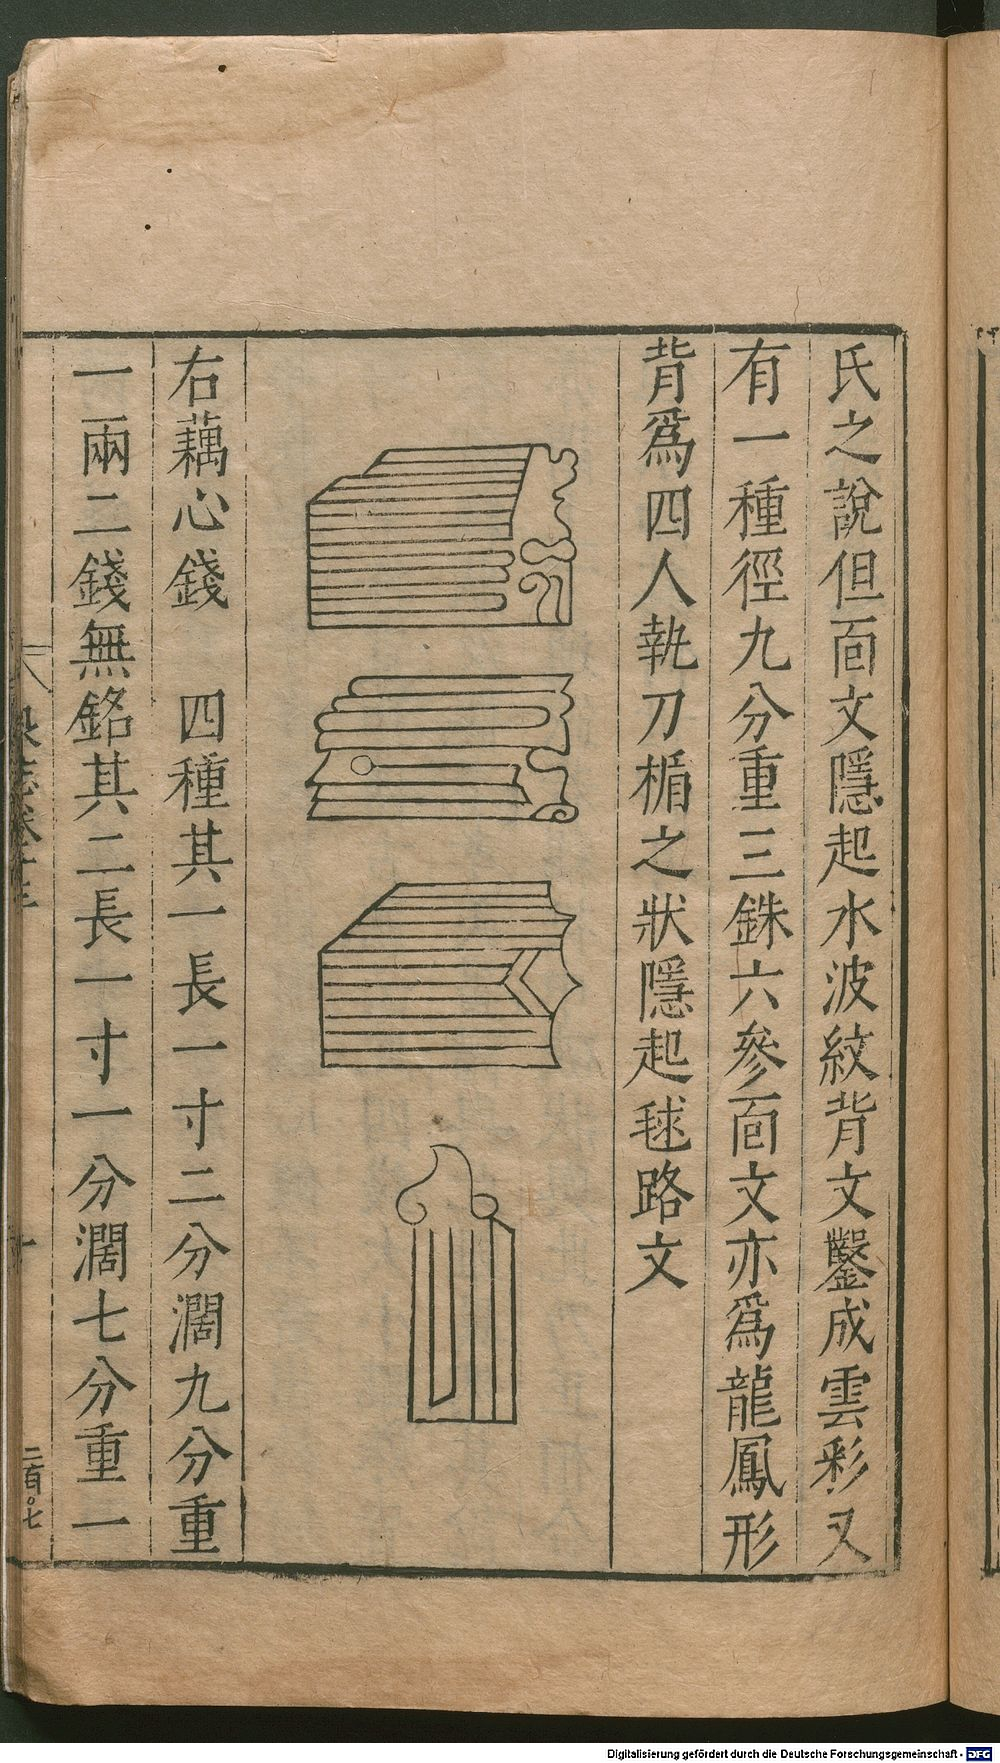 氏之說但面文隱起水波紋背文鑿成雲彩又
有一種徑九分重三銖六參面文亦爲龍鳳形
背爲四人執刀楯之狀隱起毬路文
右藕心錢 四種其一長一寸二分濶九分重
一兩二錢無銘其二長一寸一分濶七分重一
二百〇七
Digitalisierung gefördert durch die Deutsche Forschungsgemeinschaft - DFG